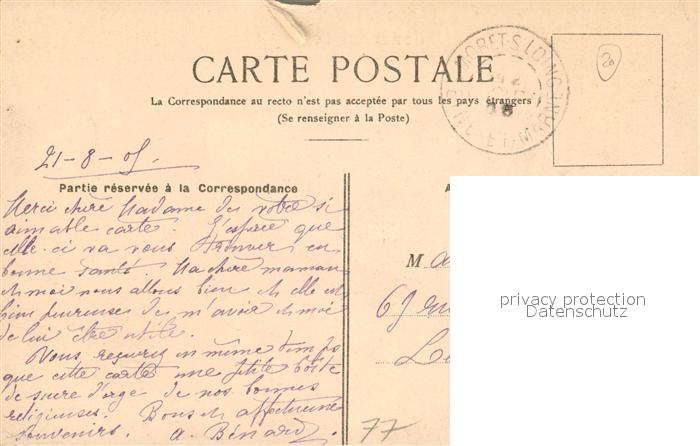 CARTE POSTALE
La Correspondance au recto n'est pas acceptée par tous les pays étrangers
(Se renseigner à la Poste)
MORET-S-LOING
ET-MARNE
20
21-8-05.
Partie réservée à la Correspondance
A
Merci chère Madame de votre si
aimable carte. J'espère que
elle-ci va vous trouver en
bonne santé. Ma chère maman
et moi nous allons bien et elle est
bien heureuse de m'avoir et moi
de lui être utile.
Vous recevrez en même temps
que cette carte une petite boîte
de sucre d'orge de nos bonnes
religieuses. Bons et affectueux
souvenirs. a. Bénard.
M
69
77
privacy protection
Datenschutz